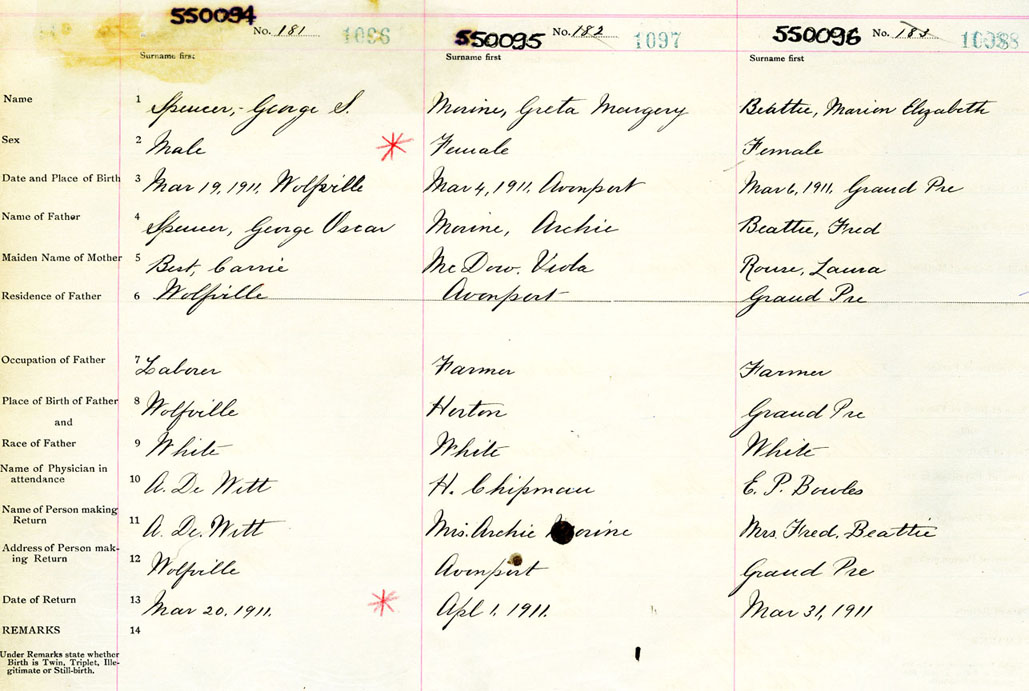 550094 No. 181 1096 550095 No. 182 1097 550096 No. 183
Surname first Surname first Surname first
Name 1 Spencer, George S. Morine, Greta Margery Beattie, Marion Elizabeth
Sex 2 Male Female Female
Date and Place of Birth 3 Mar 19, 1911, Wolfville Mar 4, 1911, Avonport Mar 6, 1911, Grand Pre
Name of Father 4 Spencer, George Oscar Morine, Archie Beattie, Fred
Maiden Name of Mother 5 Best, Carrie McDow, Viola Rouse, Laura
Residence of Father 6 Wolfville Avonport Grand Pre
Occupation of Father 7 Laborer Farmer Farmer
Place of Birth of Father 8 Wolfville Horton Grand Pre
and
Race of Father 9 White White White
Name of Physician in
attendance 10 A. De Witt H. Chipman E. P. Bowles
Name of Person making
Return 11 A. De. Witt Mrs. Archie Morine Mrs. Fred. Beattie
Address of Person mak-
ing Return 12 Wolfville Avonport Grand Pre
Date of Return 13 Mar 20, 1911. Apl 1, 1911. Mar 31, 1911
REMARKS 14
Under Remarks state whether
Birth is Twin, Triplet, Ille-
gitimate or Still-birth.